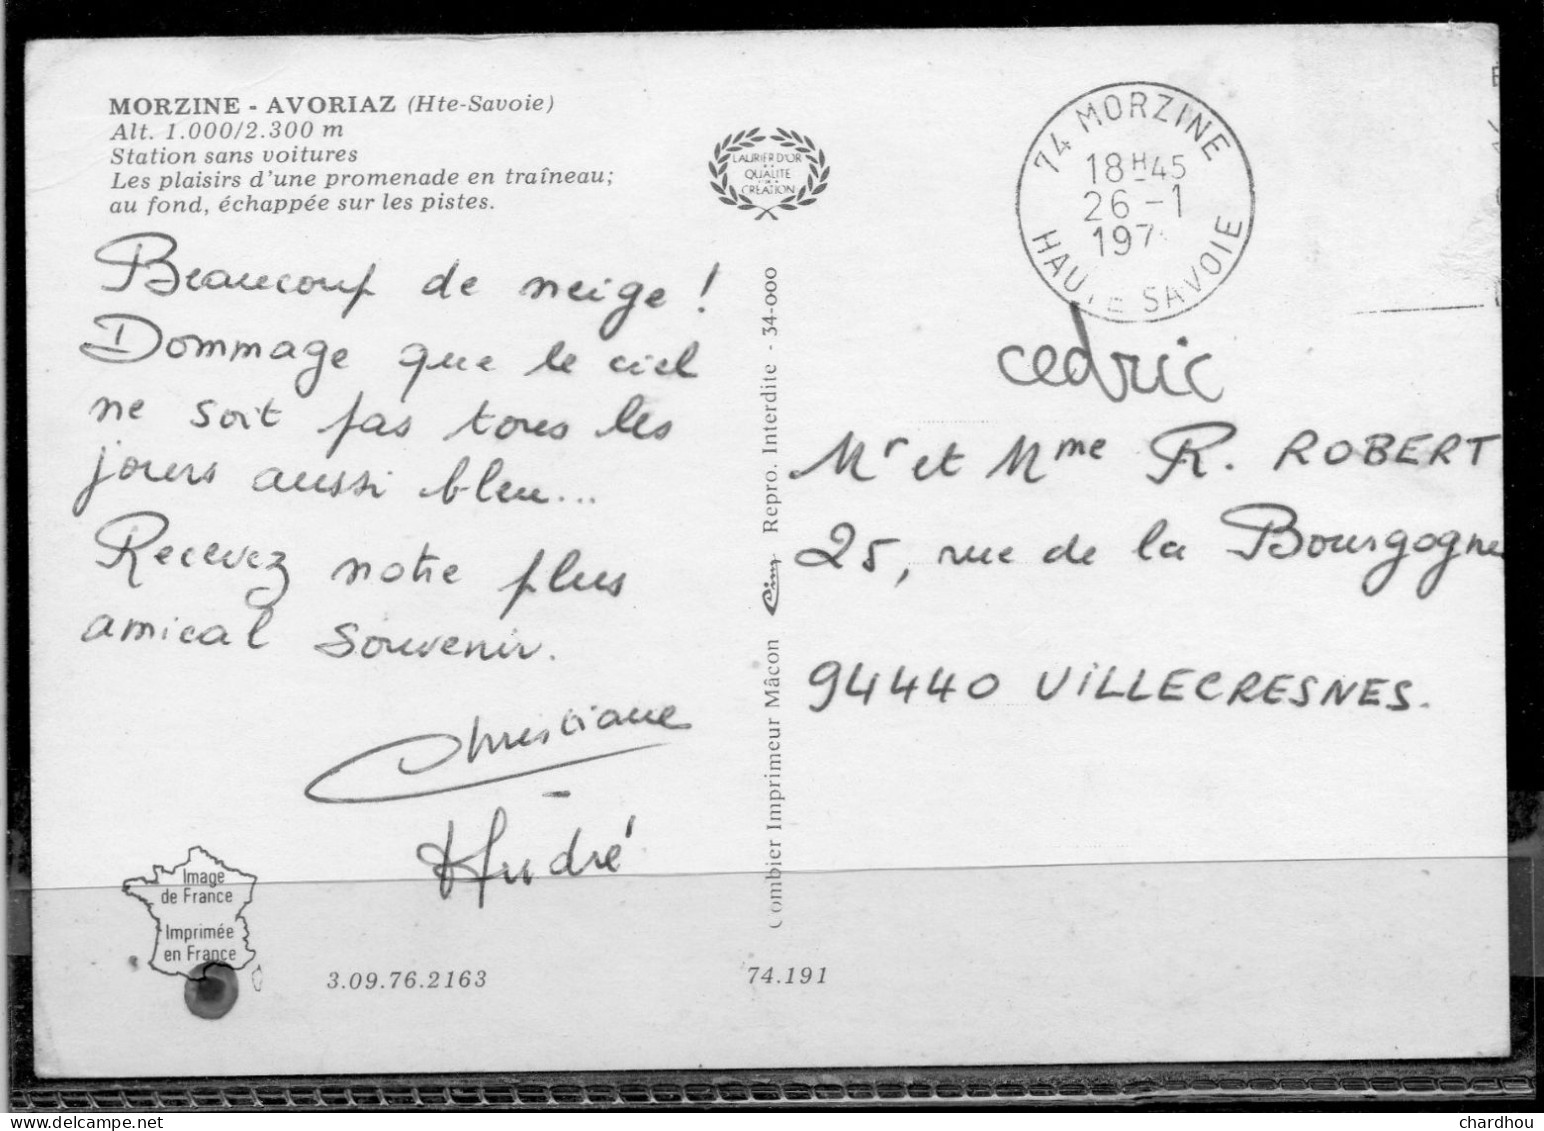 MORZINE - AVORIAZ (Hte-Savoie)
Alt. 1.000/2.300 m
Station sans voitures
Les plaisirs d'une promenade en traîneau;
au fond, échappée sur les pistes.
Beaucoup de neige !
Dommage que le ciel
ne soit pas tous les
jours aussi bleu...
Recevez notre plus
amical souvenir.
Christiane
André
Image
de France
Imprimée
en France
3.09.76.2163
LAURIER D'OR
QUALITE
CRÉATION
Combier Imprimeur Mâcon Cim Repro. Interdite - 34-000
74.191
74 MORZINE
18H45
26 -1
197
HAUTE SAVOIE
cedric
Mr et Mme R. ROBERT
25, rue de la Bourgogne
94440 VILLECRESNES.
chardhou